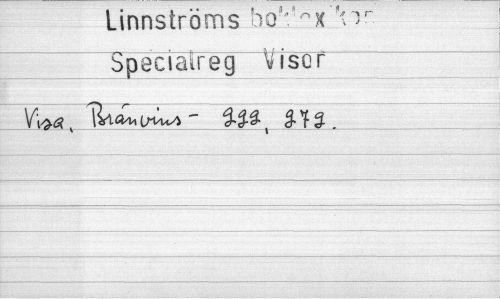 Linnströms boklexikon
Specialreg Visor
Visa, Bränvins- 222, 272.